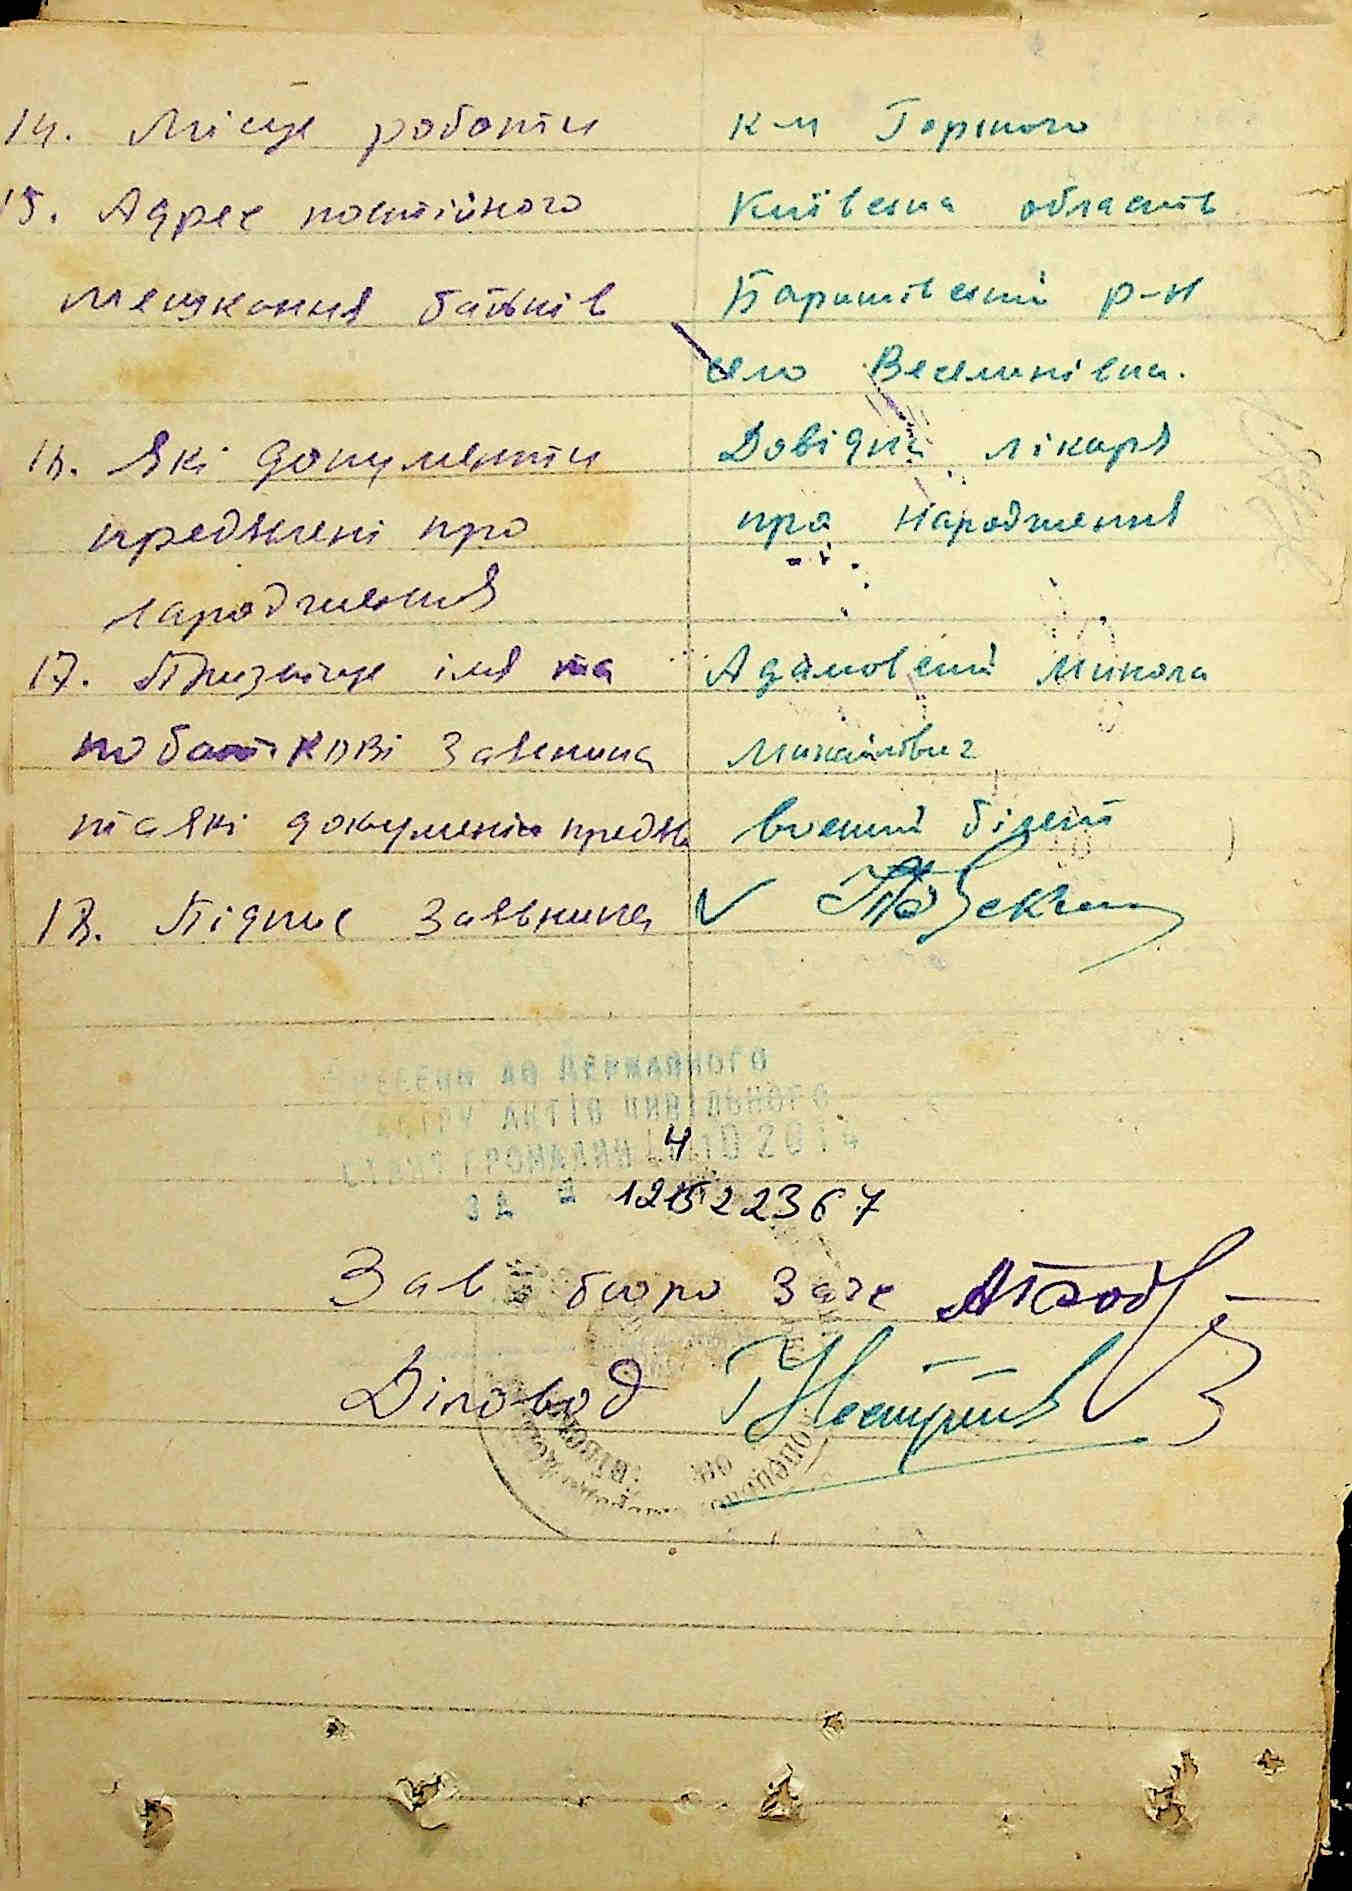 14. Місце роботи к-п Горького
15. Адрес постійного Київська область
мешкання батьків Баришівський р-н
село Веселинівка.
16. Які документи Довідка лікаря
предявлені про про народження
народження
17. Призвіще імя та Адамовский Микола
по батькові заявника Михайлович
та які документи предяв воєний білет
18. Підпис Заявника
ВНЕСЕНО ДО ДЕРЖАВНОГО
РЕЄСТРУ АКТІВ ЦИВІЛЬНОГО
СТАНУ ГРОМАДЯН 2014
ЗА №
Зав бюро Загс
Діловод